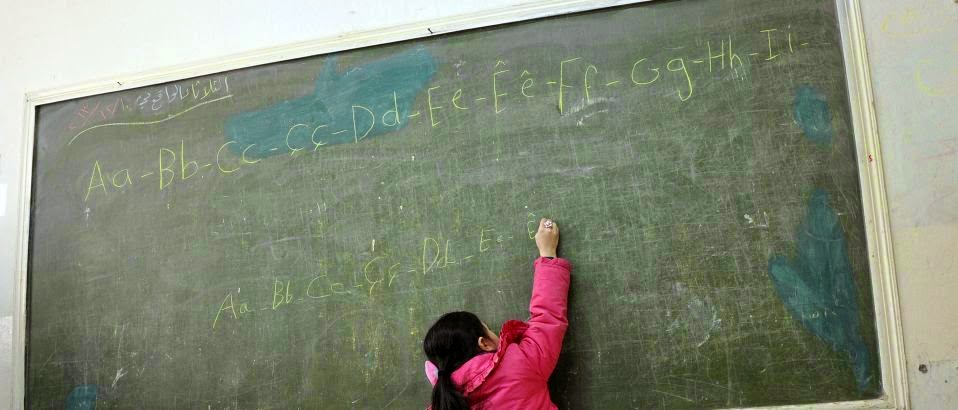 Aa-Bb-Cc-Çç-Dd-Ee-Êê-Ff-Gg-Hh-Ii-
Aa-Bb-Cc-Çç-Dd-Ee-Ê